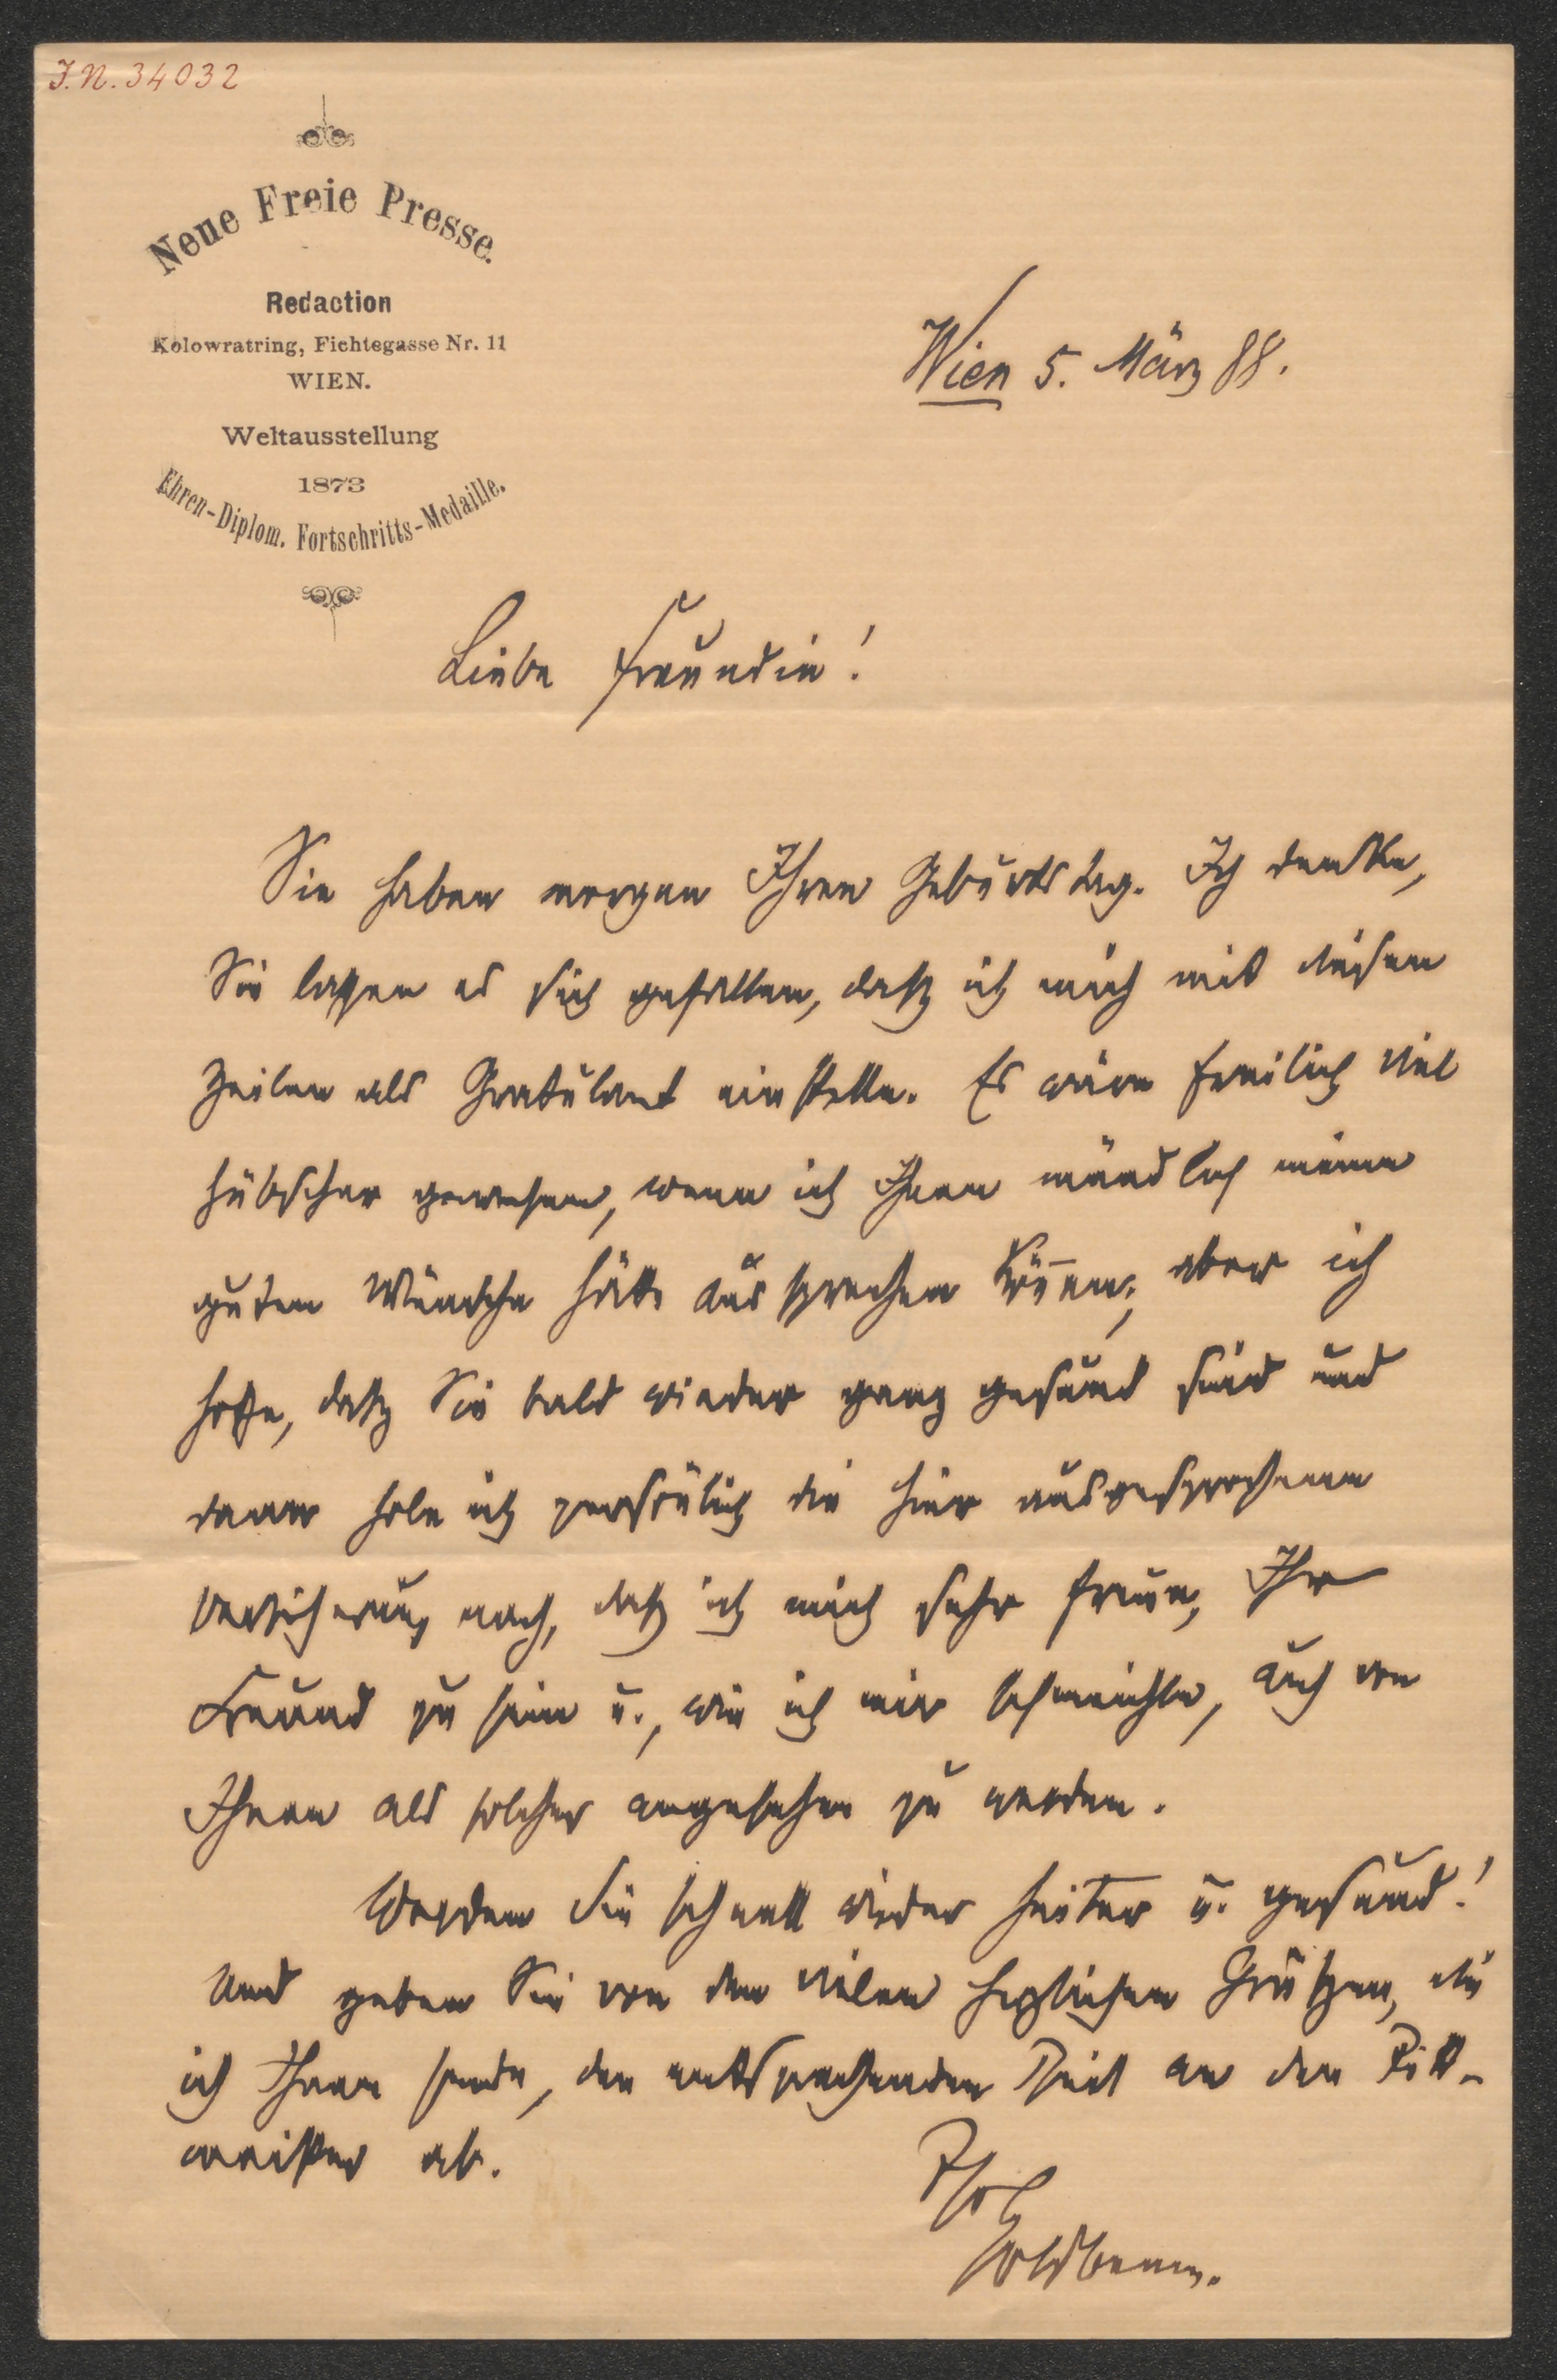 I. N. 34032
Neue Freie Presse.
Redaction
Kolowratring, Fichtegasse Nr. 11
WIEN.
Weltausstellung
1873
Ehren-Diplom. Fortschritts-Medaille.
Wien 5. März 88.
Liebe Freundin!
Sie haben morgen Ihren Geburtstag. Ich denke,
Sie lassen es sich gefallen, daß ich mich mit diesen
Zeilen als Gratulant einstelle. Es wäre freilich viel
hübscher gewesen, wenn ich Ihnen mündlich meine
guten Wünsche hätte aussprechen können; aber ich
hoffe, daß Sie bald wieder ganz gesund sind und
dann hole ich persönlich die hier ausgesprochene
Versicherung nach, daß ich mich sehr freue, Ihr
Freund zu sein u., wie ich mir schmeichle, auch von
Ihnen als solcher angesehen zu werden.
Werden Sie schnell wieder heiter u. gesund!
Und geben Sie von den vielen herzlichen Grüßen, die
ich Ihnen sende, den entsprechenden Theil an den
ab.
Goldbaum.